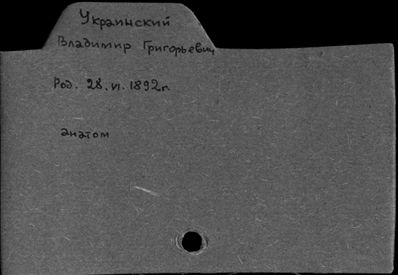 Украинский
Владимир Григорьевич
Род. 28.VI.1892г.
анатом